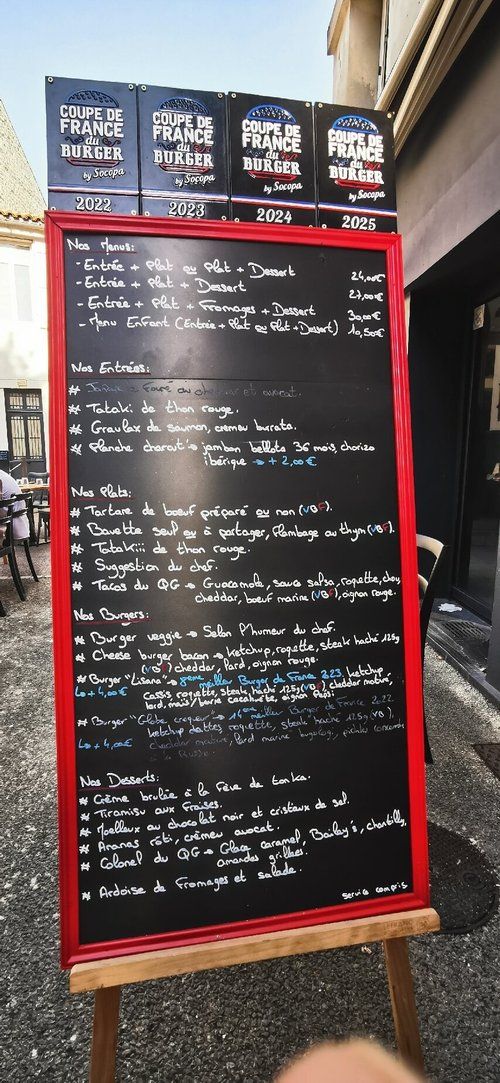 COUPE DE FRANCE du BURGER by Socopa 2022
COUPE DE FRANCE du BURGER by Socopa 2023
COUPE DE FRANCE du BURGER by Socopa 2024
COUPE DE FRANCE du BURGER by Socopa 2025
Nos Menus:
- Entrée + Plat ou Plat + Dessert 24,00€
- Entrée + Plat + Dessert 27,00€
- Entrée + Plat + Fromages + Dessert 30,00€
- Menu Enfant (Entrée + Plat ou Plat + Dessert) 10,50€
Nos Entrées:
* et avocat.
* Tataki de thon rouge.
* Gravlax de saumon, crémeu burrata.
* Planche charcut' → jambon bellota 36 mois, chorizo
ibérique → + 2,00€
Nos Plats:
* Tartare de boeuf préparé ou non (VBF).
* Bavette seul ou à partager, flambage au thym (VBF).
* Tatakiii de thon rouge.
* Suggestion du chef.
* Tacos du QG → Guacamole, sauce salsa, roquette, chou,
cheddar, boeuf mariné (VBF), oignon rouge.
Nos Burgers:
* Burger veggie → Selon l'humeur du chef.
* Cheese burger bacon → Ketchup, roquette, steak haché 125g
(VBF) cheddar, lard, oignon rouge.
* Burger "Lisana" → 8ème meilleur Burger de France 2.23, ketchup
↳ + 4,00€ cassis, roquette, steak haché 125g (VBF) cheddar maturé,
lard, maïs / barre cacahuète, oignon Pepsi
* Burger "Globe croqueur" → 14ème meilleur Burger de France 2.22
↳ + 4,00€ ketchup dattes, roquette, steak haché 125g (VBF),
cheddar maturé, lard mariné
à la Russe.
Nos Desserts:
* Crème brulée à la Fève de tonka.
* Tiramisu aux Fraises.
* Moelleux au chocolat noir et cristaux de sel.
* Ananas rôti, crémeu avocat.
* Colonel du QG → Glace caramel, Bailey's, chantilly,
amandes grillées.
* Ardoise de Fromages et salade.
service compris